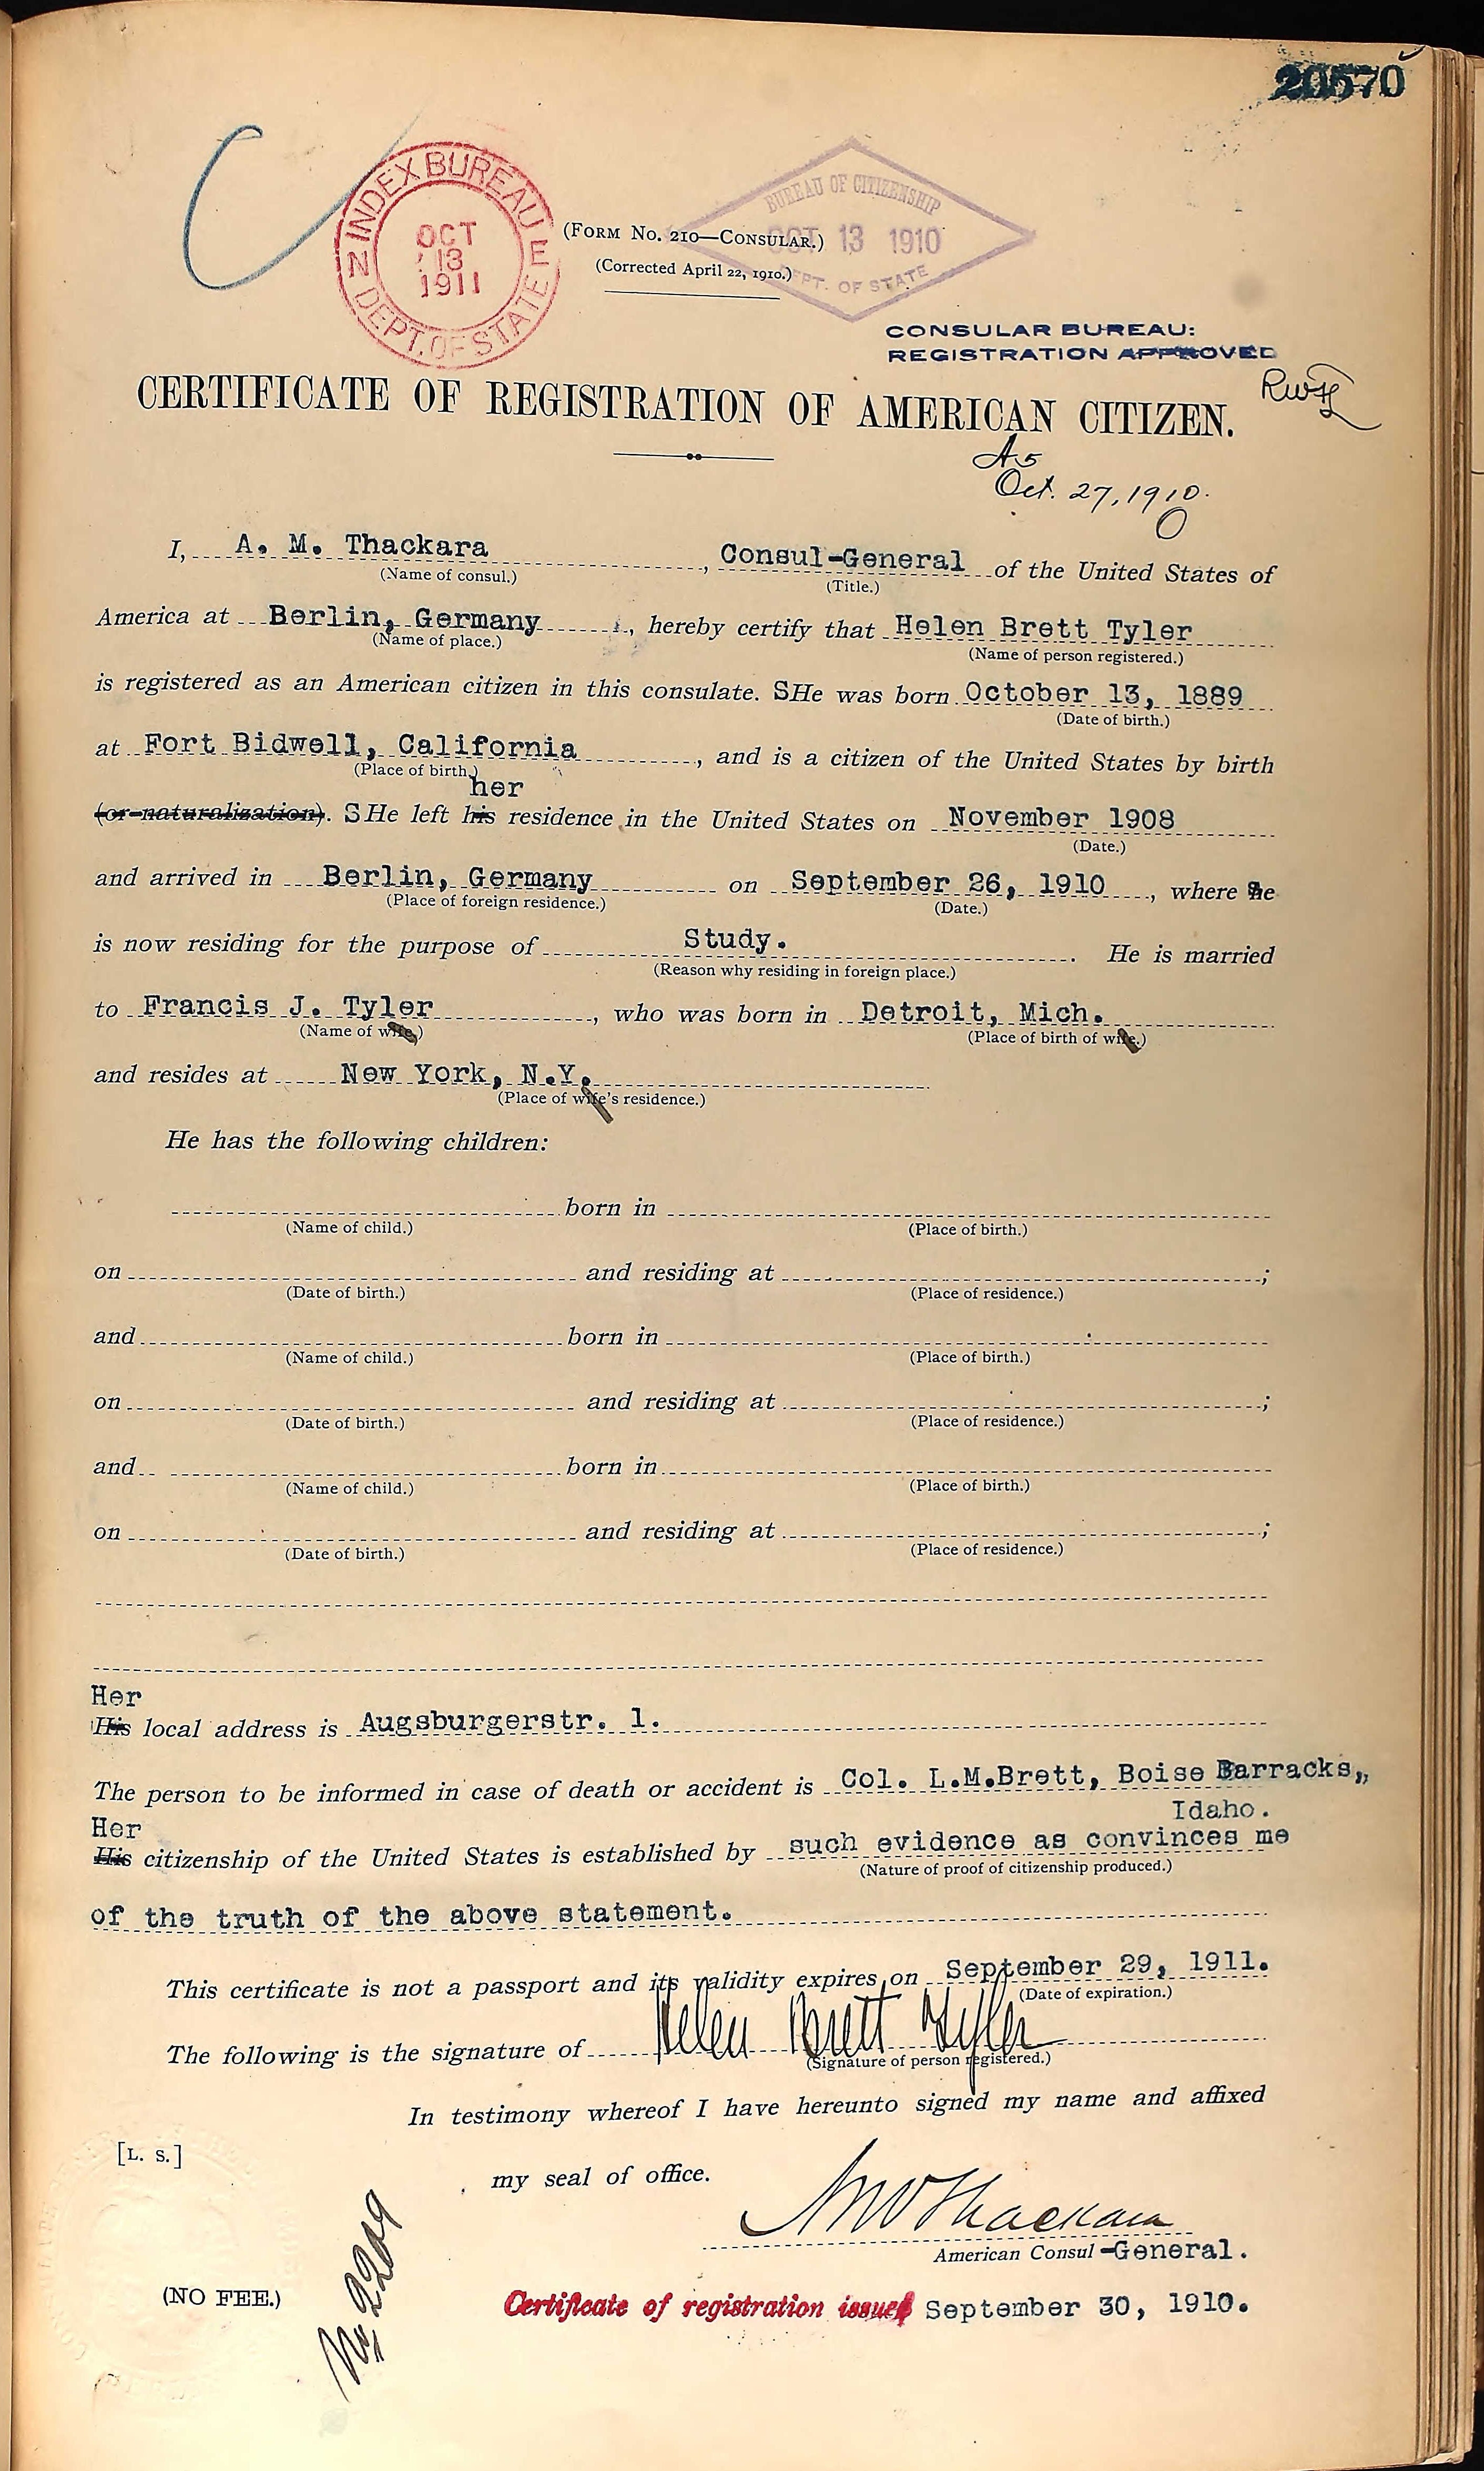 20570
INDEX BUREAU
OCT
13
1911
DEPT. OF STATE
BUREAU OF CITIZENSHIP
OCT 13 1910
DEPT. OF STATE
(FORM NO. 210—CONSULAR.)
(Corrected April 22, 1910.)
CONSULAR BUREAU:
REGISTRATION APPROVED
CERTIFICATE OF REGISTRATION OF AMERICAN CITIZEN.
Oct. 27, 1910.
I, A. M. Thackara, Consul-General of the United States of
(Name of consul.) (Title.)
America at Berlin, Germany, hereby certify that Helen Brett Tyler
(Name of place.) (Name of person registered.)
is registered as an American citizen in this consulate. SHe was born October 13, 1889
(Date of birth.)
at Fort Bidwell, California, and is a citizen of the United States by birth
(Place of birth.)
her
(or naturalization). SHe left his residence in the United States on November 1908
(Date.)
and arrived in Berlin, Germany on September 26, 1910, where he
(Place of foreign residence.) (Date.)
is now residing for the purpose of Study. He is married
(Reason why residing in foreign place.)
to Francis J. Tyler, who was born in Detroit, Mich.
(Name of wife.) (Place of birth of wife.)
and resides at New York, N.Y.
(Place of wife's residence.)
He has the following children:
born in
(Name of child.) (Place of birth.)
on and residing at ;
(Date of birth.) (Place of residence.)
and born in
(Name of child.) (Place of birth.)
on and residing at ;
(Date of birth.) (Place of residence.)
and born in
(Name of child.) (Place of birth.)
on and residing at ;
(Date of birth.) (Place of residence.)
Her
His local address is Augsburgerstr. 1.
The person to be informed in case of death or accident is Col. L.M.Brett, Boise Barracks,,
Idaho.
Her
His citizenship of the United States is established by such evidence as convinces me
(Nature of proof of citizenship produced.)
of the truth of the above statement.
This certificate is not a passport and its validity expires on September 29, 1911.
(Date of expiration.)
The following is the signature of Helen Brett Tyler
(Signature of person registered.)
In testimony whereof I have hereunto signed my name and affixed
[L. S.]
my seal of office.
AM Thackara
American Consul-General.
(NO FEE.)
No 2209
Certificate of registration issued September 30, 1910.